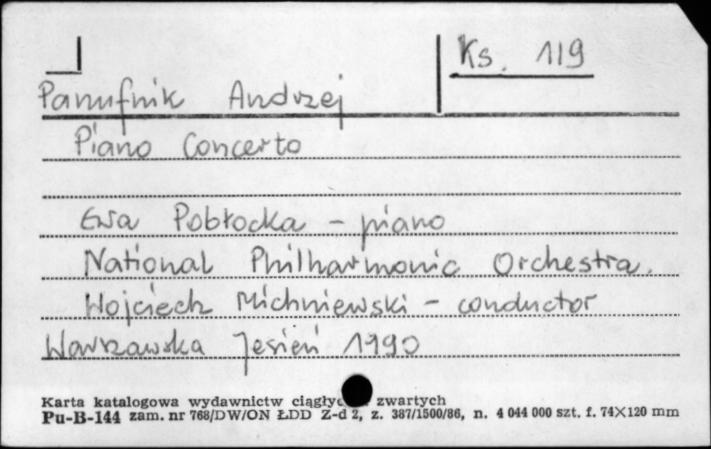 Ks. 119
Panufnik Andrzej
Piano Concerto
Ewa Pobłocka - piano
National Philharmonic Orchestra.
Wojciech Michniewski - conductor
Warszawska Jesień 1990
Karta katalogowa wydawnictw ciągłyc zwartych
Pu-B-144 zam. nr 768/DW/ON ŁDD Z-d 2, z. 387/1500/86, n. 4 044 000 szt. f. 74×120 mm